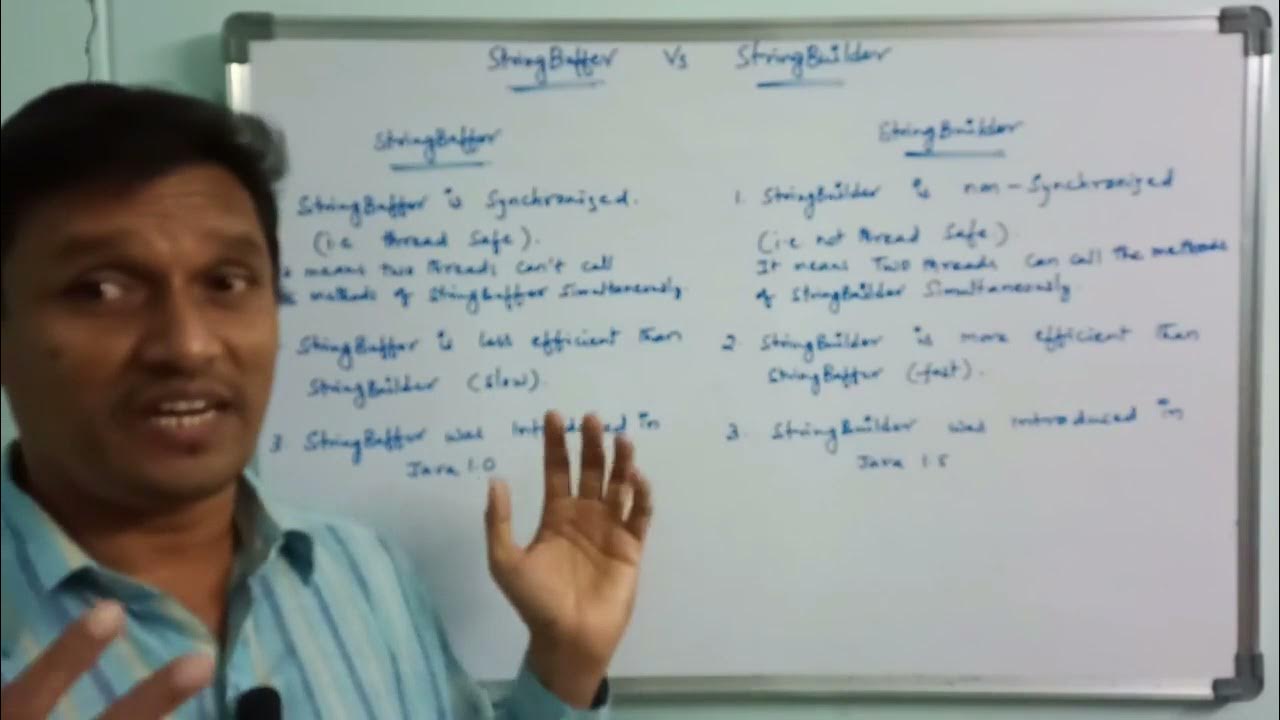 StringBuffer Vs StringBuilder
StringBuffer
StringBuffer is Synchronized.
(i.e thread safe).
means two threads can't call
methods of StringBuffer Simultaneously.
StringBuffer is less efficient than
StringBuilder (slow).
3 StringBuffer was Introduced in
Java 1.0
StringBuilder
1. StringBuilder is non-Synchronized
(i.e not thread safe)
It means Two threads can call the methods
of StringBuilder Simultaneously.
2. StringBuilder is more efficient than
StringBuffer (fast).
3. StringBuilder was introduced in
Java 1.5